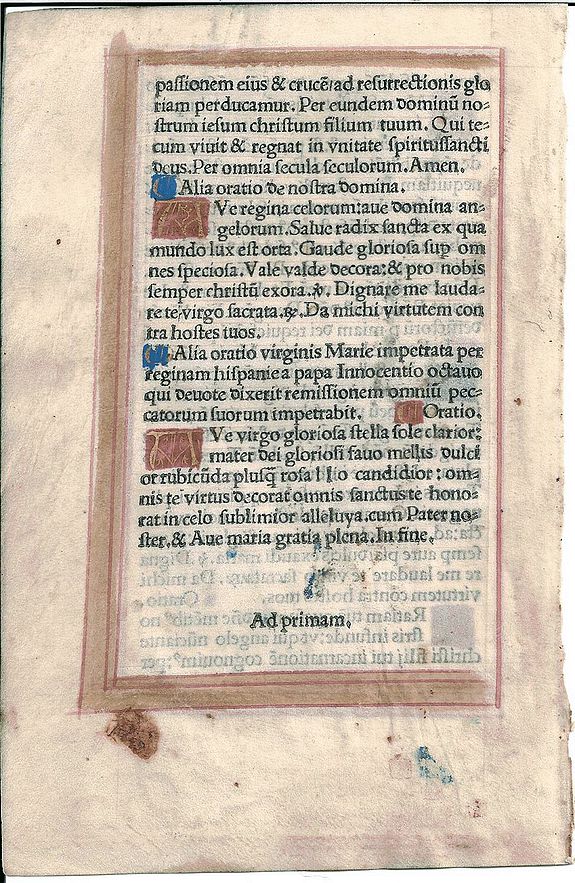 paſſionem eius & crucē: ad reſurrectionis glo
riam perducamur. Per eundem dominū no⸗
ſtrum ieſum chriſtum filium tuum. Qui te⸗
cum viuit & regnat in vnitate ſpirituſſancti
deus. Per omnia ſecula ſeculorum. Amen.
Alia oratio de noſtra domina.
AVe regina celorum: aue domina an⸗
gelorum. Salue radix ſancta ex qua
mundo lux eſt orta. Gaude glorioſa ſup om
nes ſpecioſa. Vale valde decora: & pro nobis
ſemper chriſtū exora. ℣. Dignare me lauda⸗
re te: virgo ſacrata. ℟. Da michi virtutem con
tra hoſtes tuos.
Alia oratio virginis Marie impetrata per
reginam hiſpanie a papa Innocentio octauo
qui deuote dixerit remiſſionem omniū pec⸗
catorum ſuorum impetrabit. Oratio.
AVe virgo glorioſa ſtella ſole clarior:
mater dei glorioſi fauo mellis dulci
or rubicūda pluſq̄ roſa lilio candidior: om⸗
nis te virtus decorat omnis ſanctus te hono⸗
rat in celo ſublimior alleluya. cum Pater no⸗
ſter. & Aue maria gratia plena. In fine.
Ad primam.